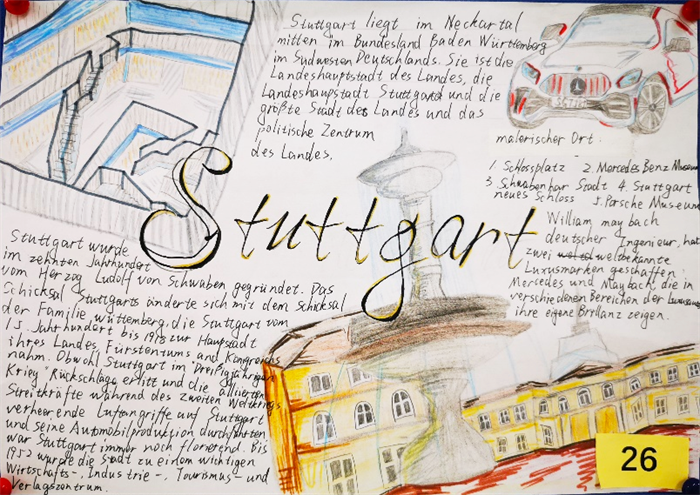 Stuttgart liegt im Neckartal
mitten im Bundesland Baden Württemberg
im Südwesten Deutschlands. Sie ist die
Landeshauptstadt des Landes, die
Landeshaupstadt Stuttgard und die
größte Stadt des Landes und das
politische Zentrum
des Landes.
malerischer Ort.
1. Schlossplatz 2. Mercedes Benz Museum
3. Schwabenbar Stadt 4. Stuttgart
neues Schloss 5. Porsche Museum
Stuttgart
William maybach
deutscher Ingenieur, hat
zwei weltbekannte
Luxusmarken geschaffen:
Mercedes und Maybach, die in
verschiedenen Bereichen der
ihre eigene Brillanz zeigen.
Stuttgart wurde
im zehnten Jahrhundert
vom Herzog Ludolf von Schwaben gegründet. Das
Schicksal Stuttgarts änderte sich mit dem Schicksal
der Familie Württemberg, die Stuttgart vom
15. Jahrhundert bis 1918 zur Haupstadt
ihres Landes, Fürstentums and Königreichs
nahm. Obwohl Stuttgart im "Dreißigjährigen
Krieg" Rückschläge erlitt und die alliierten
Streitkräfte während des zweiten Weltkriegs
verheerende Luftangriffe auf Stuttgart
und seine Automobilproduktion durchführten
war Stuttgart immer noch florierend. Bis
1953 wurde die Stadt zu einem wichtigen
Wirtschafts-, Industrie-, Tourismus- und
Verlagszentrum.
26